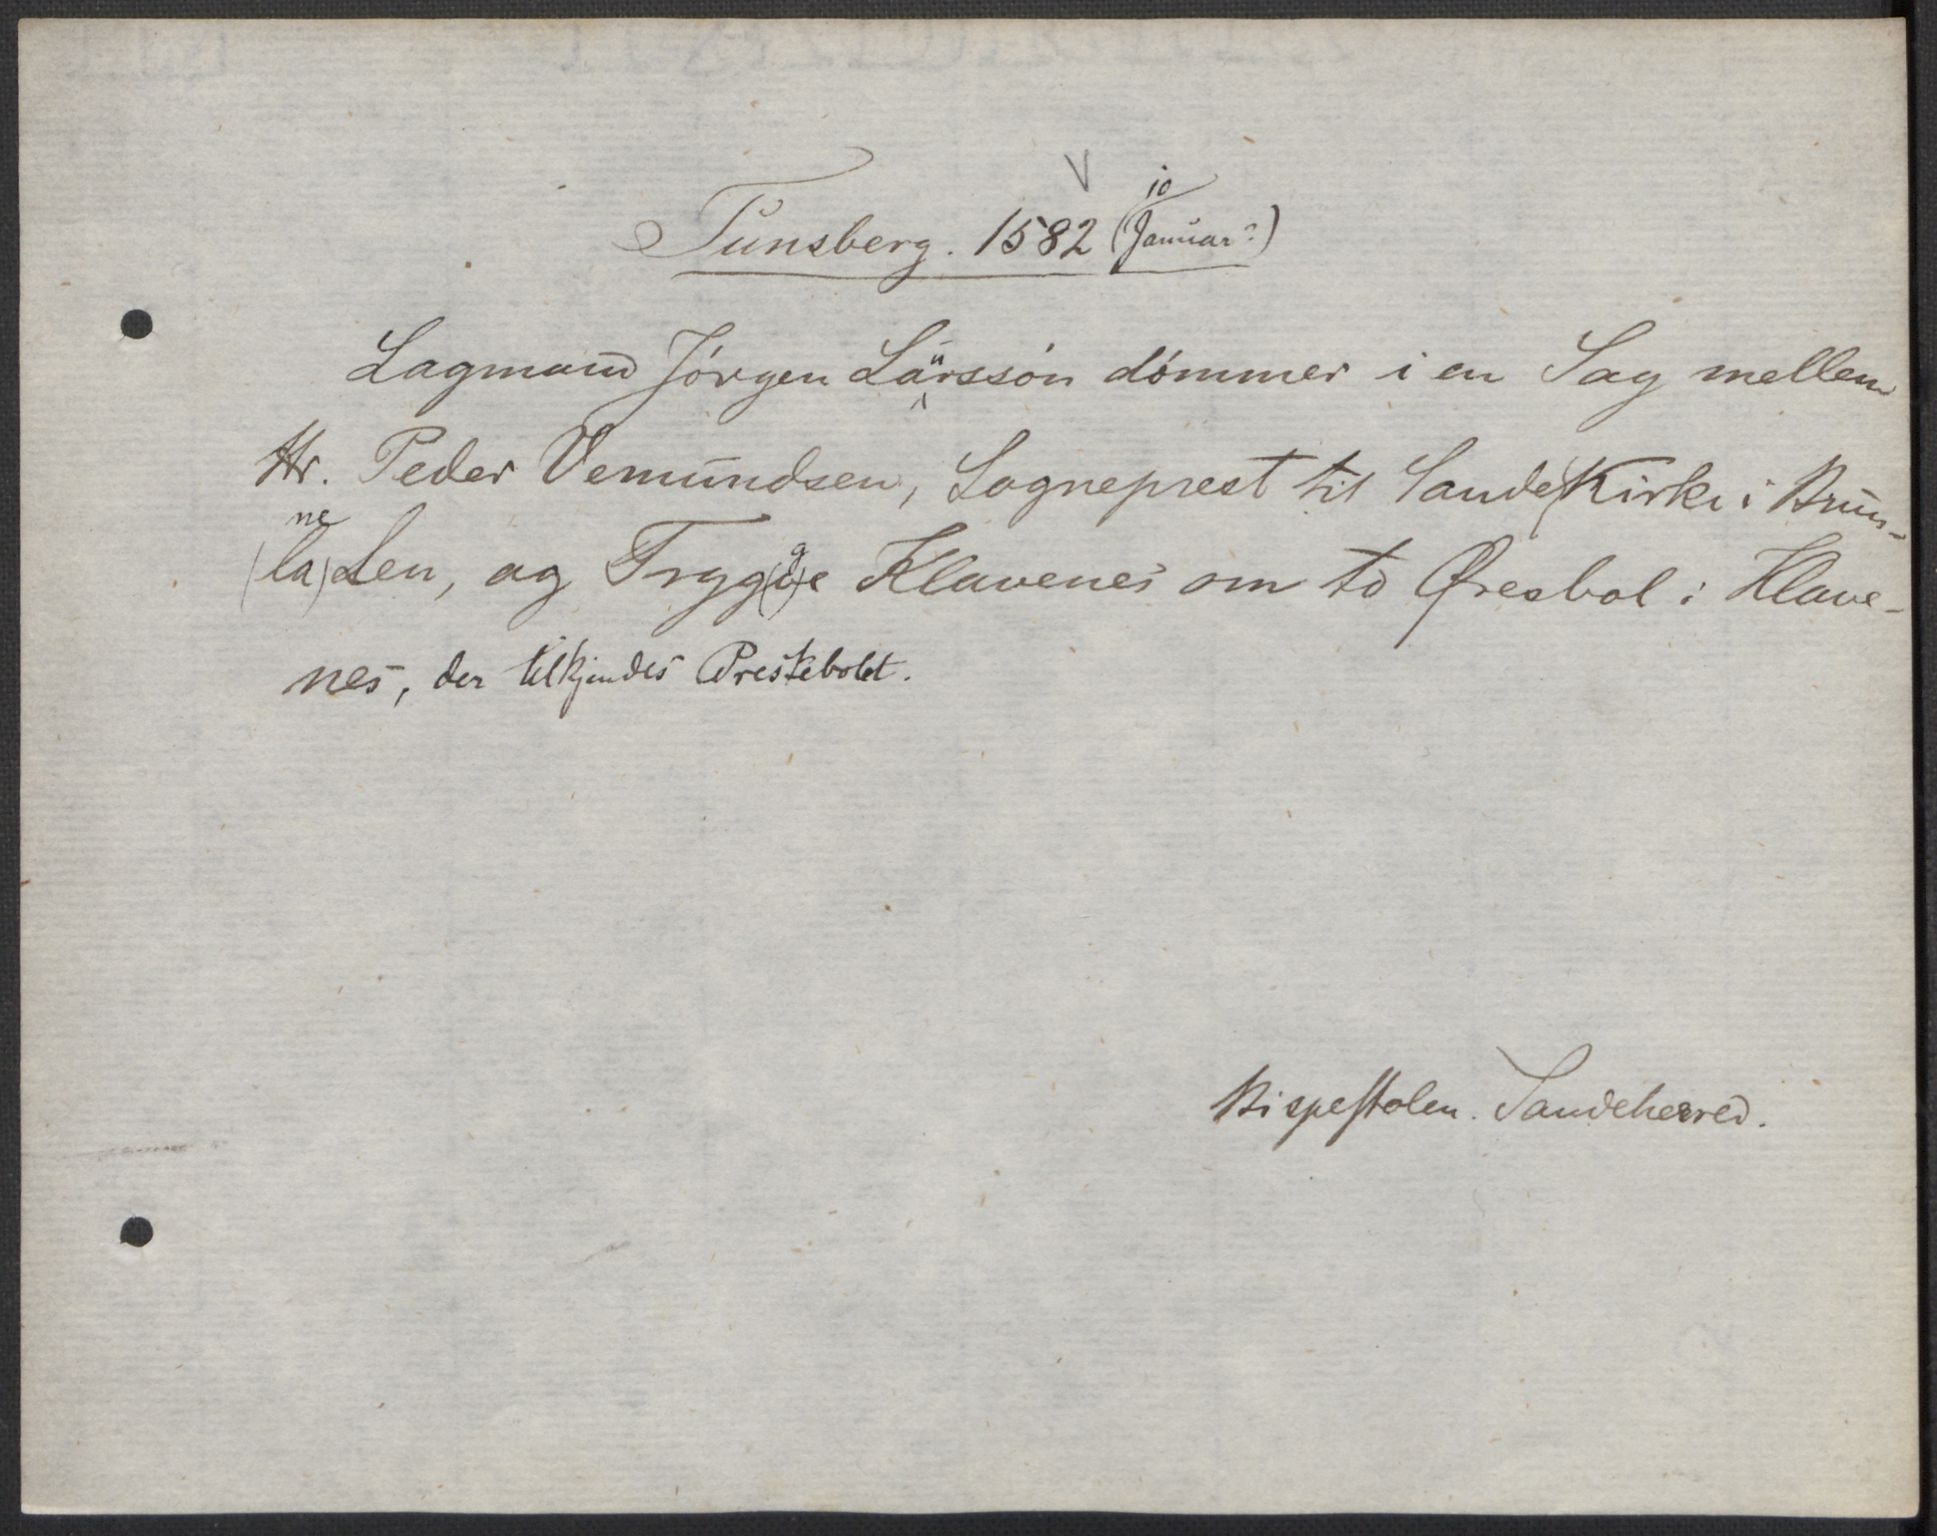 V
Tunsberg. 1582 (10/Januar?)
Lagmand Jörgen Lärssön dömmer i en Sag mellem
Hr. Peder Vemundsen, Sogneprest til Sande Kirke i Brun-
(la)ne Len, og Trygg(g)e Klavenes om to Øresbol i Klave-
nes, der tilkjendes Prestebolet.
Bispestolen. Sandeherred.